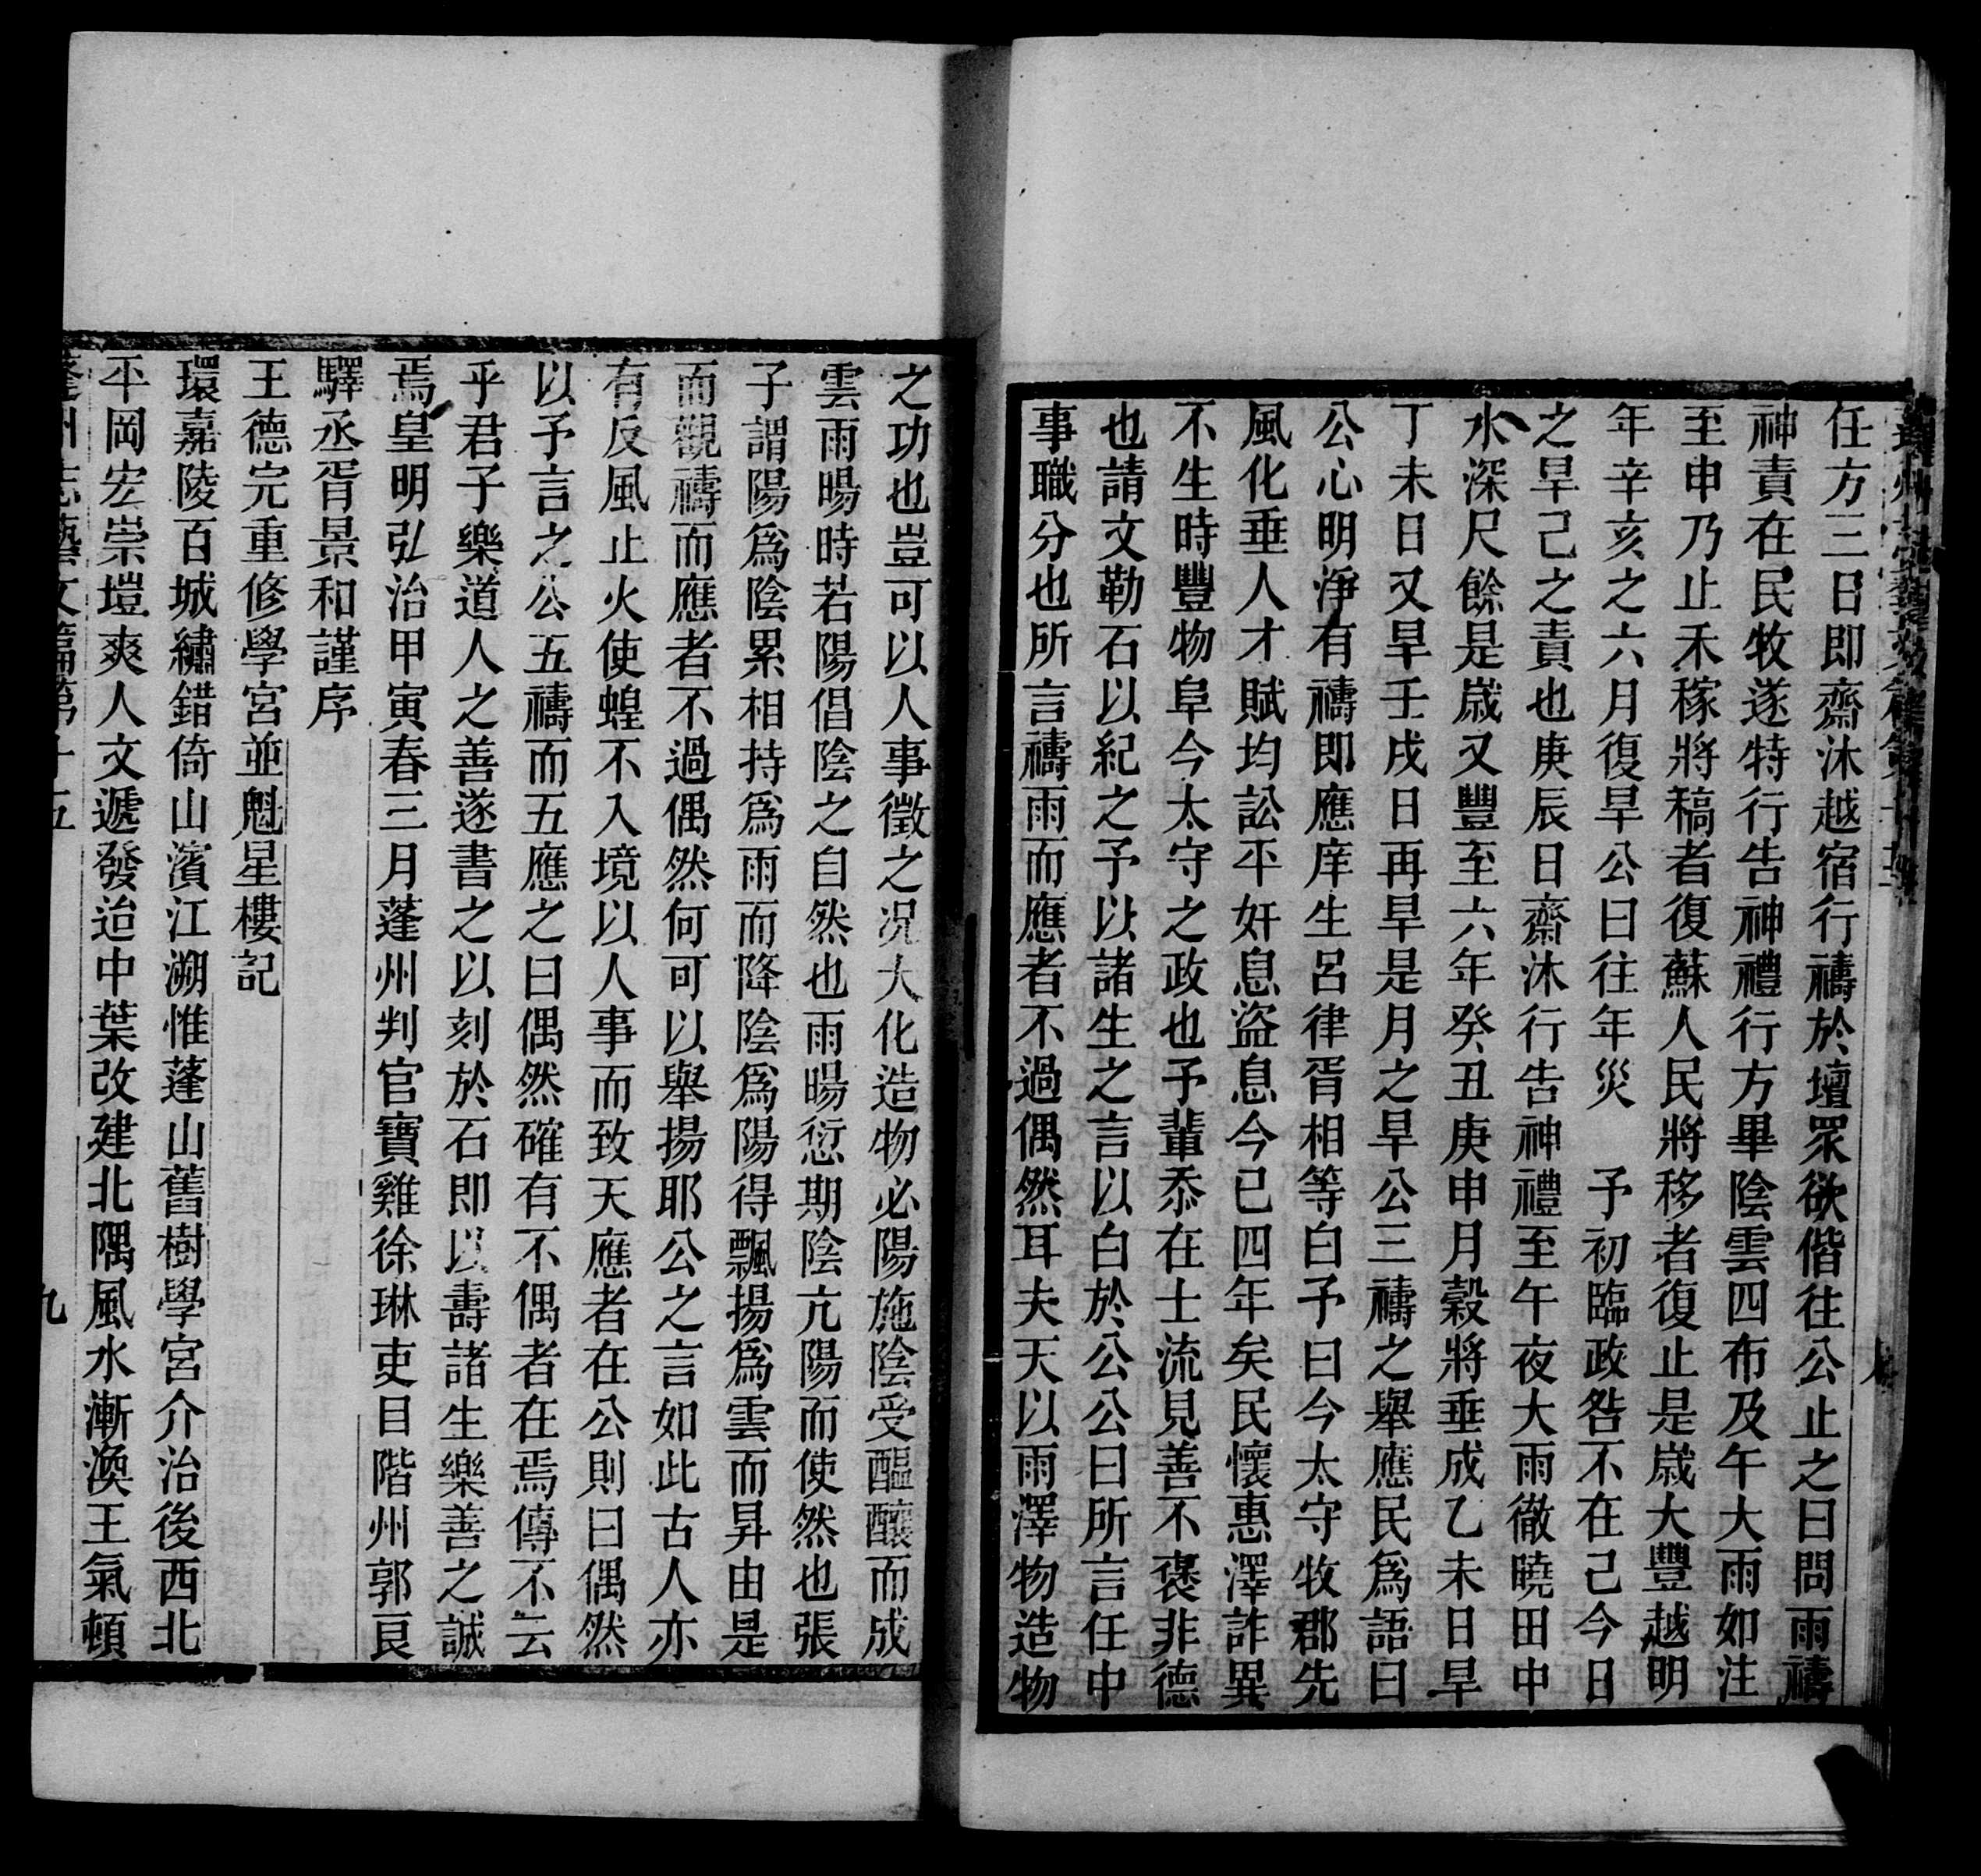 任方三日即齋沐越宿行禱於壇眾欲偕往公止之曰問雨禱
神責在民牧遂特行告神禮行方畢陰雲四布及午大雨如注
至申乃止禾稼將稿者復蘇人民將移者復止是歲大豐越明
年辛亥之六月復旱公曰往年災　予初臨政咎不在己今日
之旱己之責也庚辰日齋沐行告神禮至午夜大雨徹曉田中
水深尺餘是歲又豐至六年癸丑庚申月穀將垂成乙未日旱
丁未日又旱壬戌日再旱是月之旱公三禱之舉應民為語曰
公心明淨有禱即應庠生呂律胥相等白予曰今太守牧郡先
風化垂人才賦均訟平奸息盜息今已四年矣民懷惠澤詐異
不生時豐物阜今太守之政也予輩忝在士流見善不褒非德
也請文勒石以紀之予以諸生之言以白於公公曰所言任中
事職分也所言禱雨而應者不過偶然耳夫天以雨澤物造物
之功也豈可以人事徵之況大化造物必陽施陰受醞釀而成
雲雨暘時若陽倡陰之自然也雨暘愆期陰亢陽而使然也張
子謂陽為陰累相持為雨而降陰為陽得飄揚為雲而昇由是
而觀禱而應者不過偶然何可以舉揚耶公之言如此古人亦
有反風止火使蝗不入境以人事而致天應者在公則曰偶然
以予言之公五禱而五應之曰偶然確有不偶者在焉傳不云
乎君子樂道人之善遂書之以刻於石即以壽諸生樂善之誠
焉皇明弘治甲寅春三月蓬州判官寶雞徐琳吏目階州郭艮
驛丞胥景和謹序
王德完重修學宮並魁星樓記
環嘉陵百城繡錯倚山濱江溯惟蓬山舊樹學宮介治後西北
平岡宏崇塏爽人文遞發迨中葉改建北隅風水漸渙王氣頓
蓬州志藝文篇第十五
九